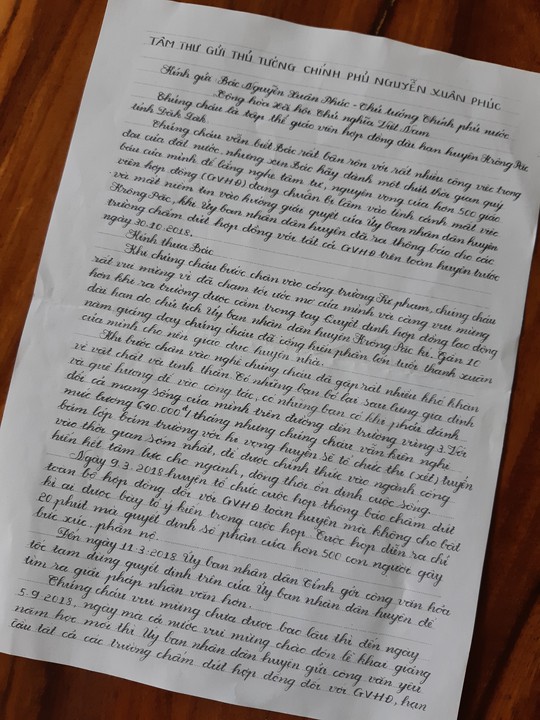 TÂM THƯ GỬI THỦ TƯỚNG CHÍNH PHỦ NGUYỄN XUÂN PHÚC
Kính gửi: Bác Nguyễn Xuân Phúc - Thủ tướng Chính phủ nước
Cộng hòa Xã hội Chủ nghĩa Việt Nam
Chúng cháu là tập thể giáo viên hợp đồng dài hạn huyện Krông Pắc
tỉnh Đắk Lắk.
Chúng cháu vẫn biết Bác rất bận rộn với rất nhiều công việc trọng
đại của đất nước, nhưng xin Bác hãy dành một chút thời gian quý
báu của mình để lắng nghe tâm tư, nguyện vọng của hơn 500 giáo
viên hợp đồng (GVHĐ) đang chuẩn bị lâm vào tình cảnh mất việc
và mất niềm tin vào hướng giải quyết của Ủy ban nhân dân huyện
Krông Pắc, khi Ủy ban nhân dân huyện đã ra thông báo cho các
trường chấm dứt hợp đồng với tất cả GVHĐ trên toàn huyện trước
ngày 30.10.2018.
Kính thưa Bác
Khi chúng cháu bước chân vào cổng trường Sư phạm, chúng cháu
rất vui mừng vì đã chạm tới ước mơ của mình và càng vui mừng
hơn khi ra trường được cầm trong tay Quyết định hợp đồng lao động
dài hạn do chủ tịch Ủy ban nhân dân huyện Krông Pắc kí. Gần 10
năm giảng dạy chúng cháu đã cống hiến phần lớn tuổi thanh xuân
của mình cho nền giáo dục huyện nhà.
Khi bước chân vào nghề chúng cháu đã gặp rất nhiều khó khăn
về vật chất và tinh thần. Có những bạn bỏ lại sau lưng gia đình
và quê hương để vào công tác, có những bạn có khi phải đánh
đổi cả mạng sống của mình trên đường đến trường vùng 3. Với
mức lương 640.000đ/tháng nhưng chúng cháu vẫn kiên nghị
bám lớp bám trường với hi vọng huyện sẽ tổ chức thi (xét) tuyển
vào thời gian sớm nhất, để được chính thức vào ngành cống
hiến hết tâm lực cho ngành, đồng thời ổn định cuộc sống.
Ngày 9.3.2018 huyện tổ chức cuộc họp thông báo chấm dứt
toàn bộ hợp đồng đối với GVHĐ toàn huyện mà không cho bất
kì ai được bày tỏ ý kiến trong cuộc họp. Cuộc họp diễn ra chỉ
20 phút mà quyết định số phận của hơn 500 con người gây
bức xúc, phẫn nộ.
Đến ngày 11.3.2018 Ủy ban nhân dân tỉnh gởi công văn hỏa
tốc tạm dừng quyết định trên của Ủy ban nhân dân huyện để
tìm ra giải pháp nhân văn hơn.
Chúng cháu vui mừng chưa được bao lâu thì đến ngày
5.9.2018, ngày mà cả nước vui mừng chào đón lễ khai giảng
năm học mới thì Ủy ban nhân dân huyện gửi công văn yêu
cầu tất cả các trường chấm dứt hợp đồng đối với GVHĐ, hạn